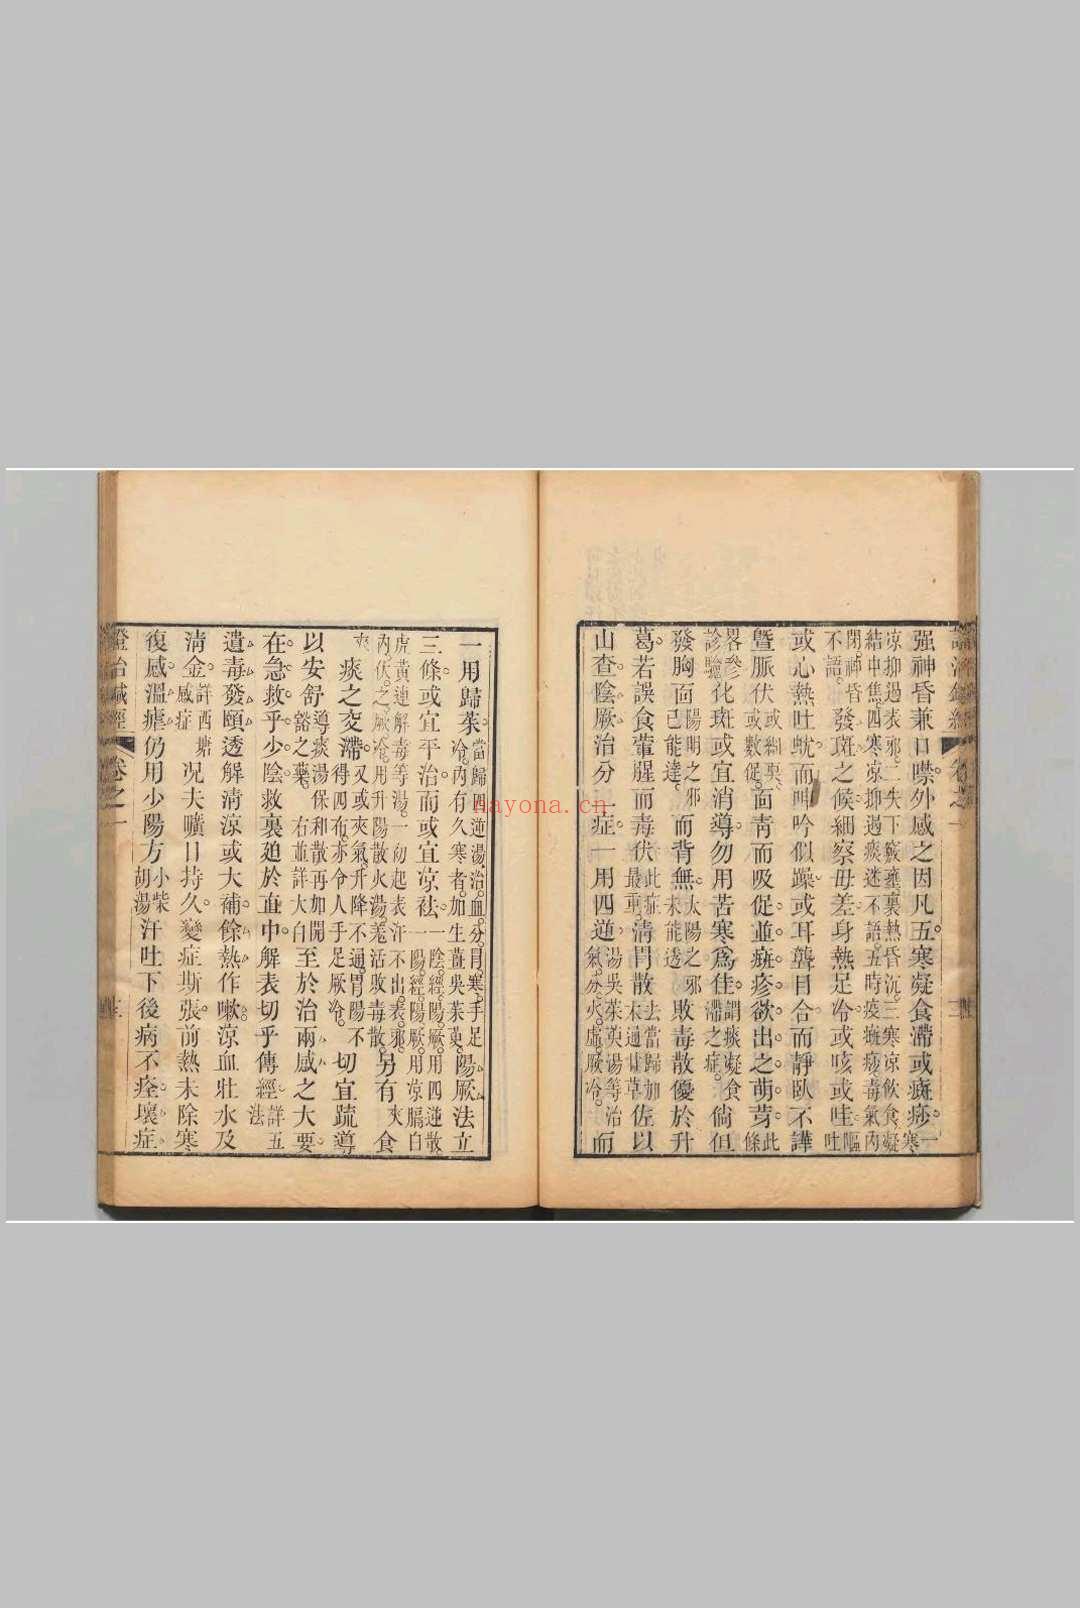 强神昏兼口噤外感之因凡五寒凝食滯或癍痧一寒
凉抑過表邪二失下竅壅裏熱昏沉三寒凉飲食凝
結中焦四寒凉抑過痰迷不語五時疫癍痧毒氣內
閉神昏
不語發斑之候細察毋差身熱足冷或咳或哇嘔
吐
或心熱吐蚘而呻吟似躁或耳聾目合而靜臥不譁
暨脈伏或細耎或數促面青而吸促並癍疹欲出之萌芽此條
畧參
診驗化斑或宜消導勿用苦寒爲佳謂痰凝食滯之症倘但
發胸面已陽明之邪已能達而背無太陽之邪未能透敗毒散優於升
葛若誤食葷腥而毒伏此症最重清胃散去當歸加木通甘草佐以
山查陰厥治分二症一用四逆湯吳茱萸湯等治氣分火虛厥冷而
證治鍼經 卷之一
一用歸茱當歸四逆湯治血分胃寒手足冷內有久寒者加生薑吳茱萸陽厥法立
三條或宜平治而或宜凉祛一陰經陽厥用四逆散一陽經陽厥用凉膈白
虎黃連解毒等湯一初起表汗不出表邪
內伏之厥冷用升陽散火湯羗活敗毒散另有夾食
夾痰之交滯又或夾氣升降不通胃陽不得四布亦令人手足厥冷切宜䟽導
以安舒導痰湯保和散再加開豁之藥右並詳大白至於治兩感之大要
在急救乎少陰救裏廹於直中解表切乎傳經詳五法
遺毒發頤透解清凉或大補餘熱作嗽凉血壯水及
清金詳西塘感症况夫曠日持久變症斯張前熱未除寒
復感溫瘧仍用少陽方小柴胡湯汗吐下後病不痊壞症
證治鍼經 卷之一
nayona.cn